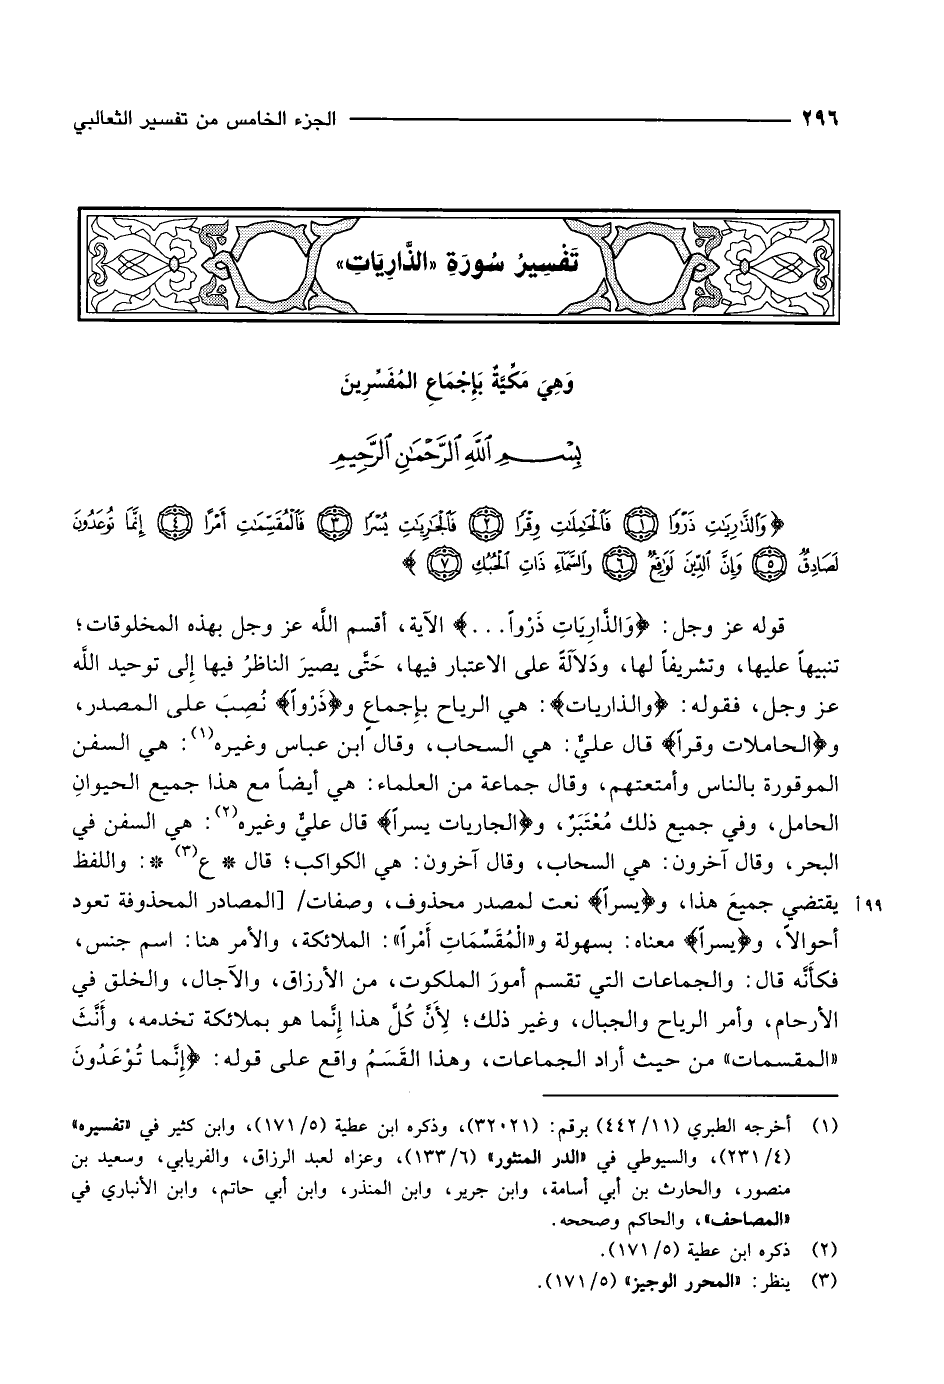 ٢٩٦ ــــــــــــــــــــــــــــــــ الجزء الخامس من تفسير الثعالبي
تَفْسِيرُ سُورَةِ «الذَّارِيَاتِ»
وَهِيَ مَكِّيَّةٌ بِإِجْمَاعِ المُفَسِّرِينَ
بِسْمِ ٱللَّهِ ٱلرَّحْمَٰنِ ٱلرَّحِيمِ
﴿وَٱلذَّٰرِيَٰتِ ذَرْوًا ١ فَٱلْحَٰمِلَٰتِ وِقْرًا ٢ فَٱلْجَٰرِيَٰتِ يُسْرًا ٣ فَٱلْمُقَسِّمَٰتِ أَمْرًا ٤ إِنَّمَا تُوعَدُونَ
لَصَادِقٌ ٥ وَإِنَّ ٱلدِّينَ لَوَٰقِعٌ ٦ وَٱلسَّمَآءِ ذَاتِ ٱلْحُبُكِ ٧﴾
قوله عز وجل: ﴿وَالذَّارِيَاتِ ذَرْواً...﴾ الآية، أقسم اللَّه عز وجل بهذه المخلوقات؛
تنبيهاً عليها، وتشريفاً لها، ودَلاَلَةً على الاعتبار فيها، حَتَّى يصيرَ الناظرُ فيها إلى توحيد اللَّه
عز وجل، فقوله: ﴿والذاريات﴾: هي الرياح بإجماعٍ و﴿ذَرْواً﴾ نُصِبَ على المصدر،
و﴿الحاملات وقراً﴾ قال عليٌّ: هي السحاب، وقال ابن عباس وغيره(١): هي السفن
الموقورة بالناس وأمتعتهم، وقال جماعة من العلماء: هي أيضاً مع هذا جميع الحيوانِ
الحامل، وفي جميع ذلك مُعْتَبَرٌ، و﴿الجاريات يسراً﴾ قال عليٌّ وغيره(٢): هي السفن في
البحر، وقال آخرون: هي السحاب، وقال آخرون: هي الكواكب؛ قال * ع(٣) *: واللفظ
١٩٩ يقتضي جميعَ هذا، و﴿يسراً﴾ نعت لمصدر محذوف، وصفات/ [المصادر المحذوفة تعود
أحوالاً، و﴿يسراً﴾ معناه: بسهولة و«الْمُقَسِّمَاتِ أَمْراً»: الملائكة، والأمر هنا: اسم جنس،
فكأَنَّه قال: والجماعات التي تقسم أمورَ الملكوت، من الأرزاق، والآجال، والخلق في
الأرحام، وأمر الرياح والجبال، وغير ذلك؛ لِأَنَّ كُلَّ هذا إنَّما هو بملائكة تخدمه، وأَنَّثَ
«المقسمات» من حيث أراد الجماعات، وهذا القَسَمُ واقع على قوله: ﴿إنَّما تُوْعَدُونَ
(١) أخرجه الطبري (١١/ ٤٤٢) برقم: (٣٢٠٢١)، وذكره ابن عطية (٥/ ١٧١)، وابن كثير في «تفسيره»
(٤/ ٢٣١)، والسيوطي في «الدر المنثور» (٦/ ١٣٣)، وعزاه لعبد الرزاق، والفريابي، وسعيد بن
منصور، والحارث بن أبي أسامة، وابن جرير، وابن المنذر، وابن أبي حاتم، وابن الأنباري في
«المصاحف»، والحاكم وصححه.
(٢) ذكره ابن عطية (٥/ ١٧١).
(٣) ينظر: «المحرر الوجيز» (٥/ ١٧١).